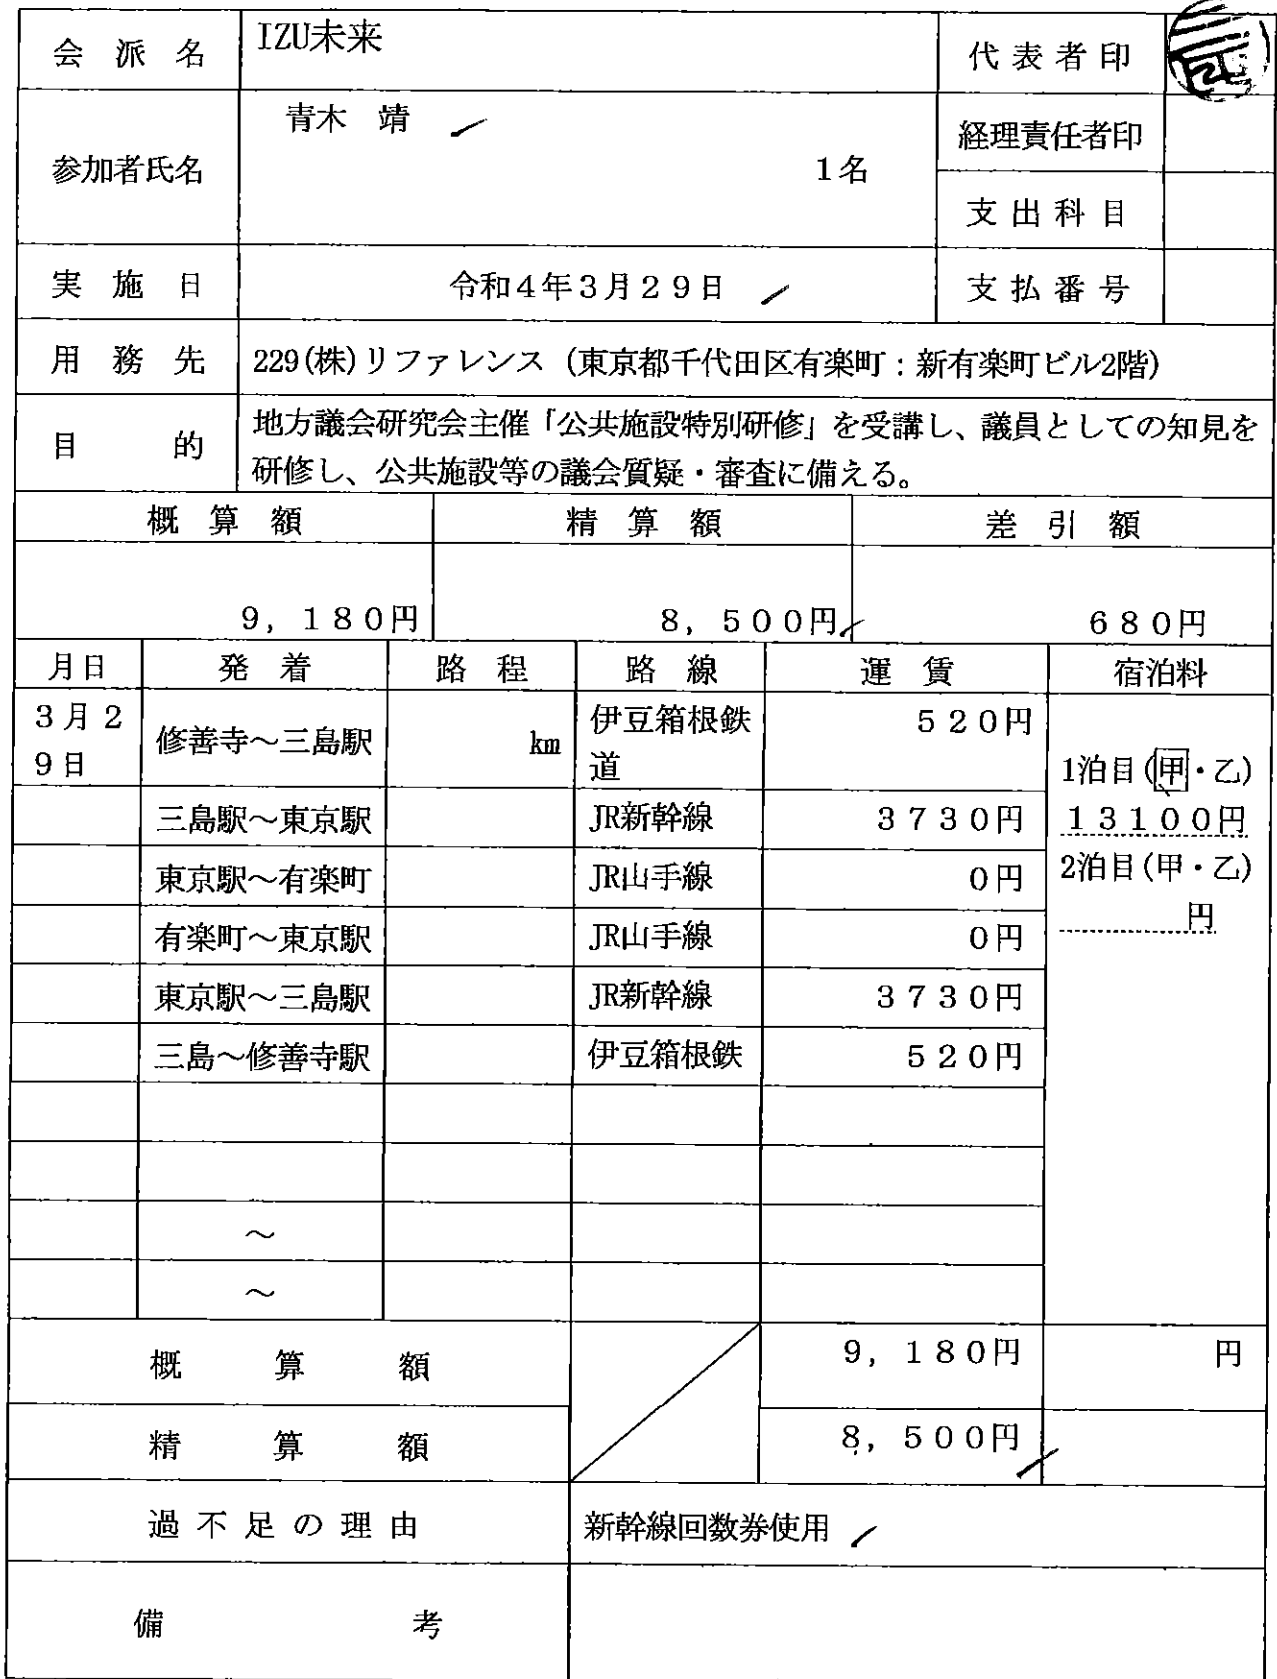 会派名 IZU未来 代表者印
参加者氏名 青木 靖 1名 経理責任者印
支出科目
実施日 令和4年3月29日 支払番号
用務先 229(株)リファレンス（東京都千代田区有楽町：新有楽町ビル2階）
目的 地方議会研究会主催「公共施設特別研修」を受講し、議員としての知見を
研修し、公共施設等の議会質疑・審査に備える。
概算額 精算額 差引額
9,180円 8,500円 680円
月日 発着 路程 路線 運賃 宿泊料
3月2 修善寺～三島駅 km 伊豆箱根鉄 520円
9日 道 1泊目(甲・乙)
三島駅～東京駅 JR新幹線 3730円 13100円
東京駅～有楽町 JR山手線 0円 2泊目(甲・乙)
有楽町～東京駅 JR山手線 0円 円
東京駅～三島駅 JR新幹線 3730円
三島～修善寺駅 伊豆箱根鉄 520円
～
～
概算額 9,180円 円
精算額 8,500円
過不足の理由 新幹線回数券使用
備考